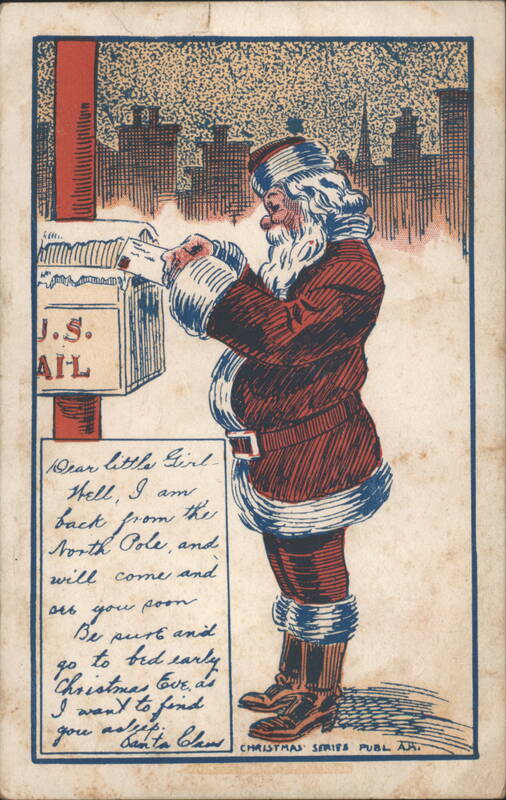 U.S.
MAIL
Dear little Girl-
Well, I am
back from the
North Pole, and
will come and
see you soon
Be sure and
go to bed early
Christmas Eve, as
I want to find
you asleep.
Santa Claus
CHRISTMAS SERIES PUBL. A.H.